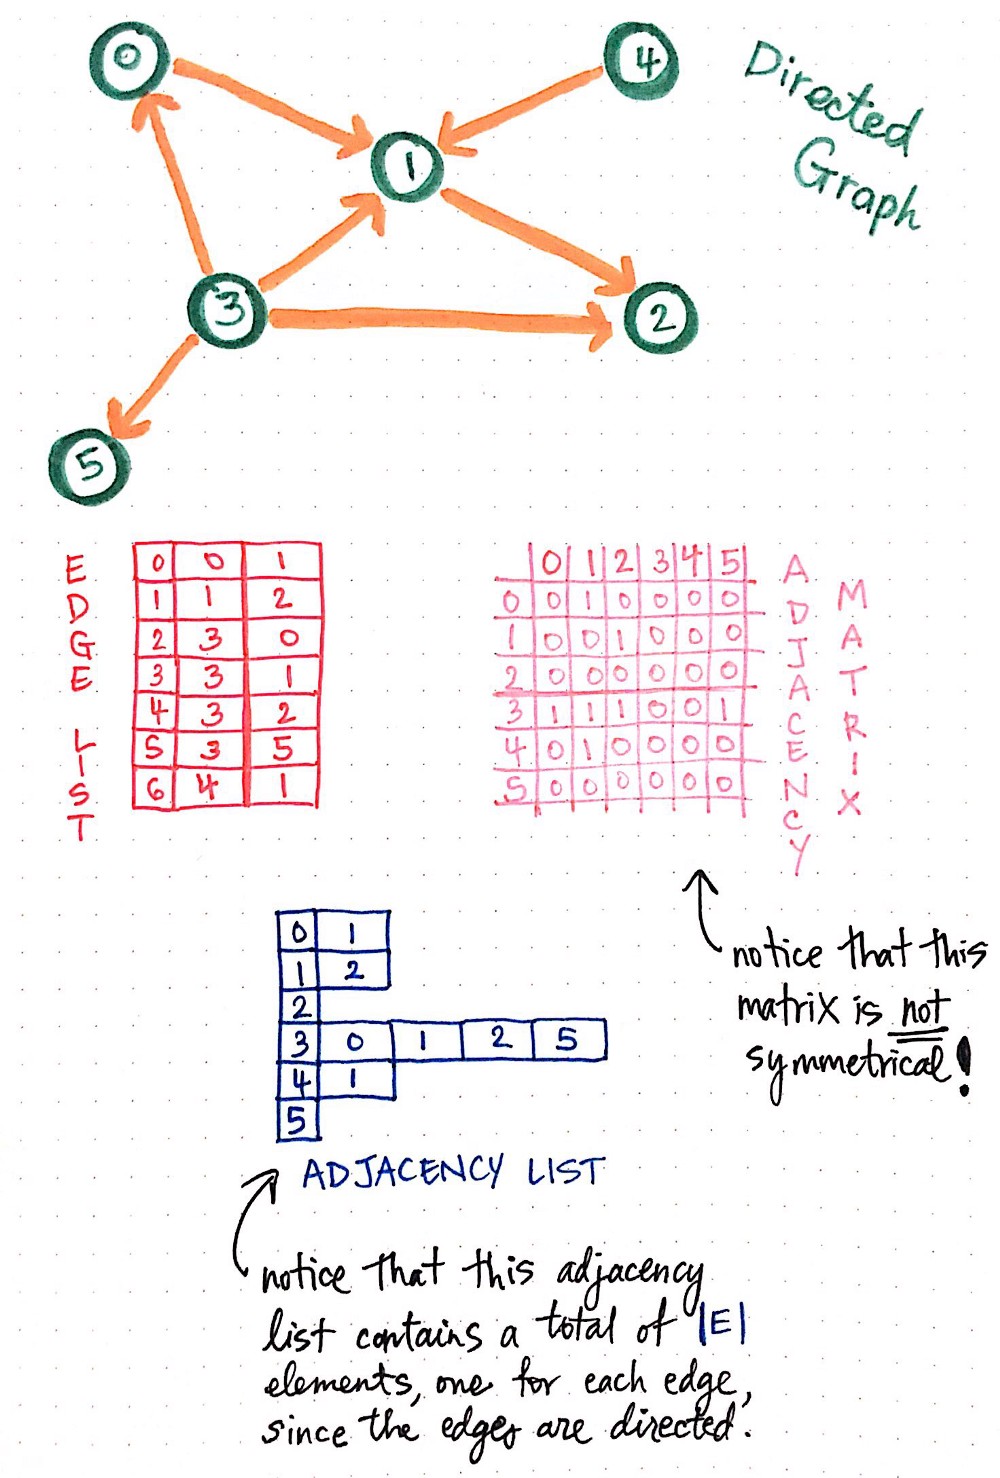 0
4
Directed
Graph
1
3
2
5
EDGE LIST
0 0 1
1 1 2
2 3 0
3 3 1
4 3 2
5 3 5
6 4 1
0 1 2 3 4 5
0 0 1 0 0 0 0
1 0 0 1 0 0 0
2 0 0 0 0 0 0
3 1 1 1 0 0 1
4 0 1 0 0 0 0
5 0 0 0 0 0 0
ADJACENCY
MATRIX
notice that this
matrix is not
symmetrical!
0 1
1 2
2
3 0 1 2 5
4 1
5
ADJACENCY LIST
notice that this adjacency
list contains a total of |E|
elements, one for each edge,
since the edges are directed.